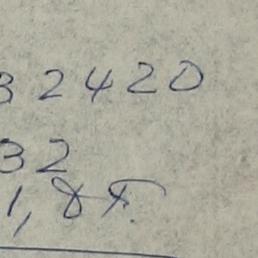 32420
32
1,85